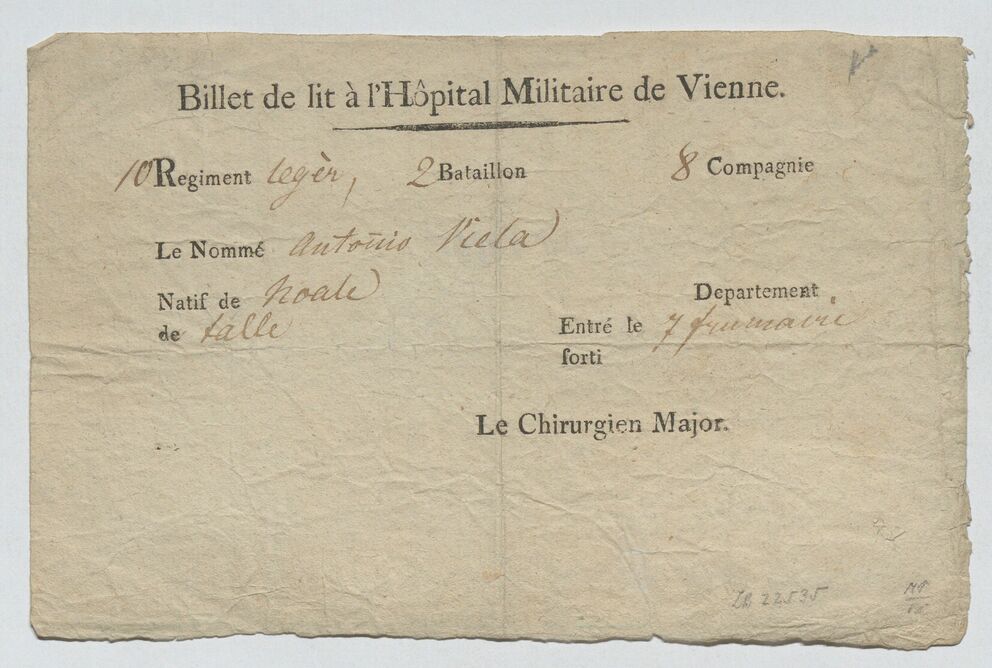 Billet de lit à l'Hôpital Militaire de Vienne.
10 Regiment legèr, 2 Bataillon 8 Compagnie
Le Nommé Antonio Viela
Natif de Noale Departement
de talle Entré le 7 frumaire
sorti
Le Chirurgien Major.
22535